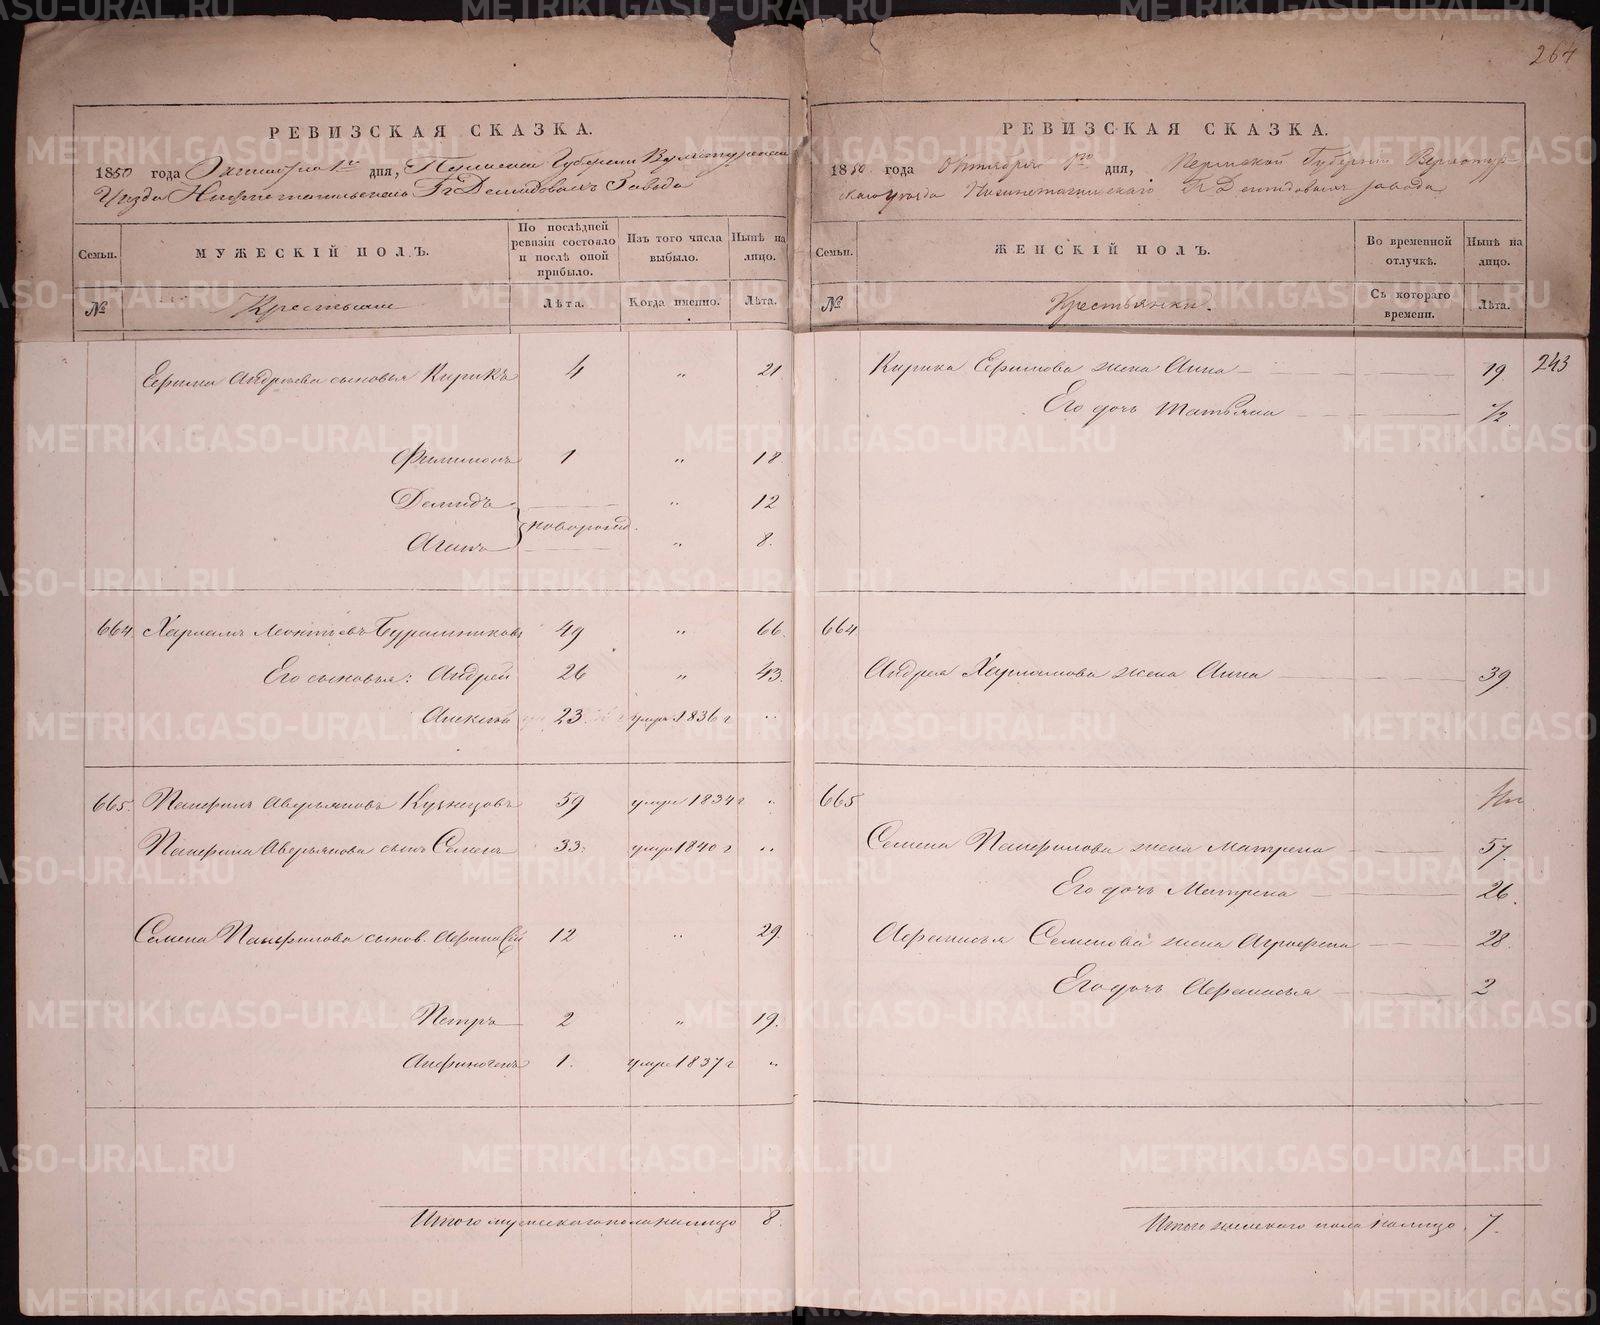 264
РЕВИЗСКАЯ СКАЗКА.
1850 года Октября 1го дня, Пермской Губернии Верхотурскаго
Уезда Нижнетагильскаго Гг Демидовыхъ Завода
Семьи.
МУЖЕСКІЙ ПОЛЪ.
По послѣдней ревизіи состояло и послѣ оной прибыло.
Изъ того числа выбыло.
Нынѣ на лицо.
№
Крестьяне
Лѣта.
Когда именно.
Лѣта.
Ефима Андреева сыновья Кирикъ 4 „ 21
Филимонъ 1 „ 18
Демидъ „ 12
новорожд.
Агапъ „ 8.
664 Харлампъ Леонтьевъ 49 „ 66.
Его сыновья: Андрей 26 „ 43.
Алексей 23 умре 1836 г „
665. Панфилъ Аверьяновъ Кузнецовъ 59 умре 1834 г „
Панфила Аверьянова сынъ Семенъ 33. умре 1840 г „
Семена Панфилова сынов. 12 „ 29.
Петръ 2 „ 19.
Анфиногенъ 1. умре 1837 г „
Итого мужескаго пола налицо 8.
РЕВИЗСКАЯ СКАЗКА.
1850 года Октября 1го дня, Пермской Губернии Верхотур-
скаго уезда Нижнетагильскаго Гг Демидовыхъ завода
Семьи.
ЖЕНСКІЙ ПОЛЪ.
Во временной отлучкѣ.
Нынѣ на лицо.
№
Крестьянки.
Съ котораго времени.
Лѣта.
Кирика Ефимова жена Анна 19. 243
Его дочь Татьяна 1/2
664
Андрея Харлампова жена Анна 39.
665
Семена Панфилова жена Матрена 57.
Его дочь Матрена 26.
Афанасья Семенова жена Аграфена 28.
Его дочь Афанасья 2
Итого женскаго пола налицо 7.
METRIKI.GASO-URAL.RU